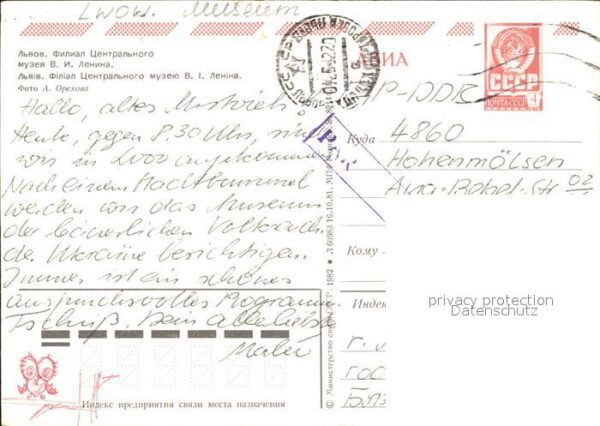 LWOW. Museum
Львов. Филиал Центрального
музея В. И. Ленина.
Львів. Філіал Центрального музею В. І. Леніна.
Фото А. Орехова
АВИА
СССР
ПОЧТА СССР
4
Hallo, altes
Heute, gegen 8.30 Uhr, sind
wir in Lwow angekommen
Nach einem Stadtbummel
werden wir das Museum
der bäuerlichen
der Ukraine besichtigen.
Immer ist ein schönes
anspruchsvolles Programm.
Tschüß. Dein allerliebster
PAR
DDR
Куда 4860
Hohenmölsen
Bebel-Str 02
Кому
Индекс
г.
гос
privacy protection
Datenschutz
Индекс предприятия связи места назначения
© Министерство связи СССР. 1982
Л 60983 16.10.81.